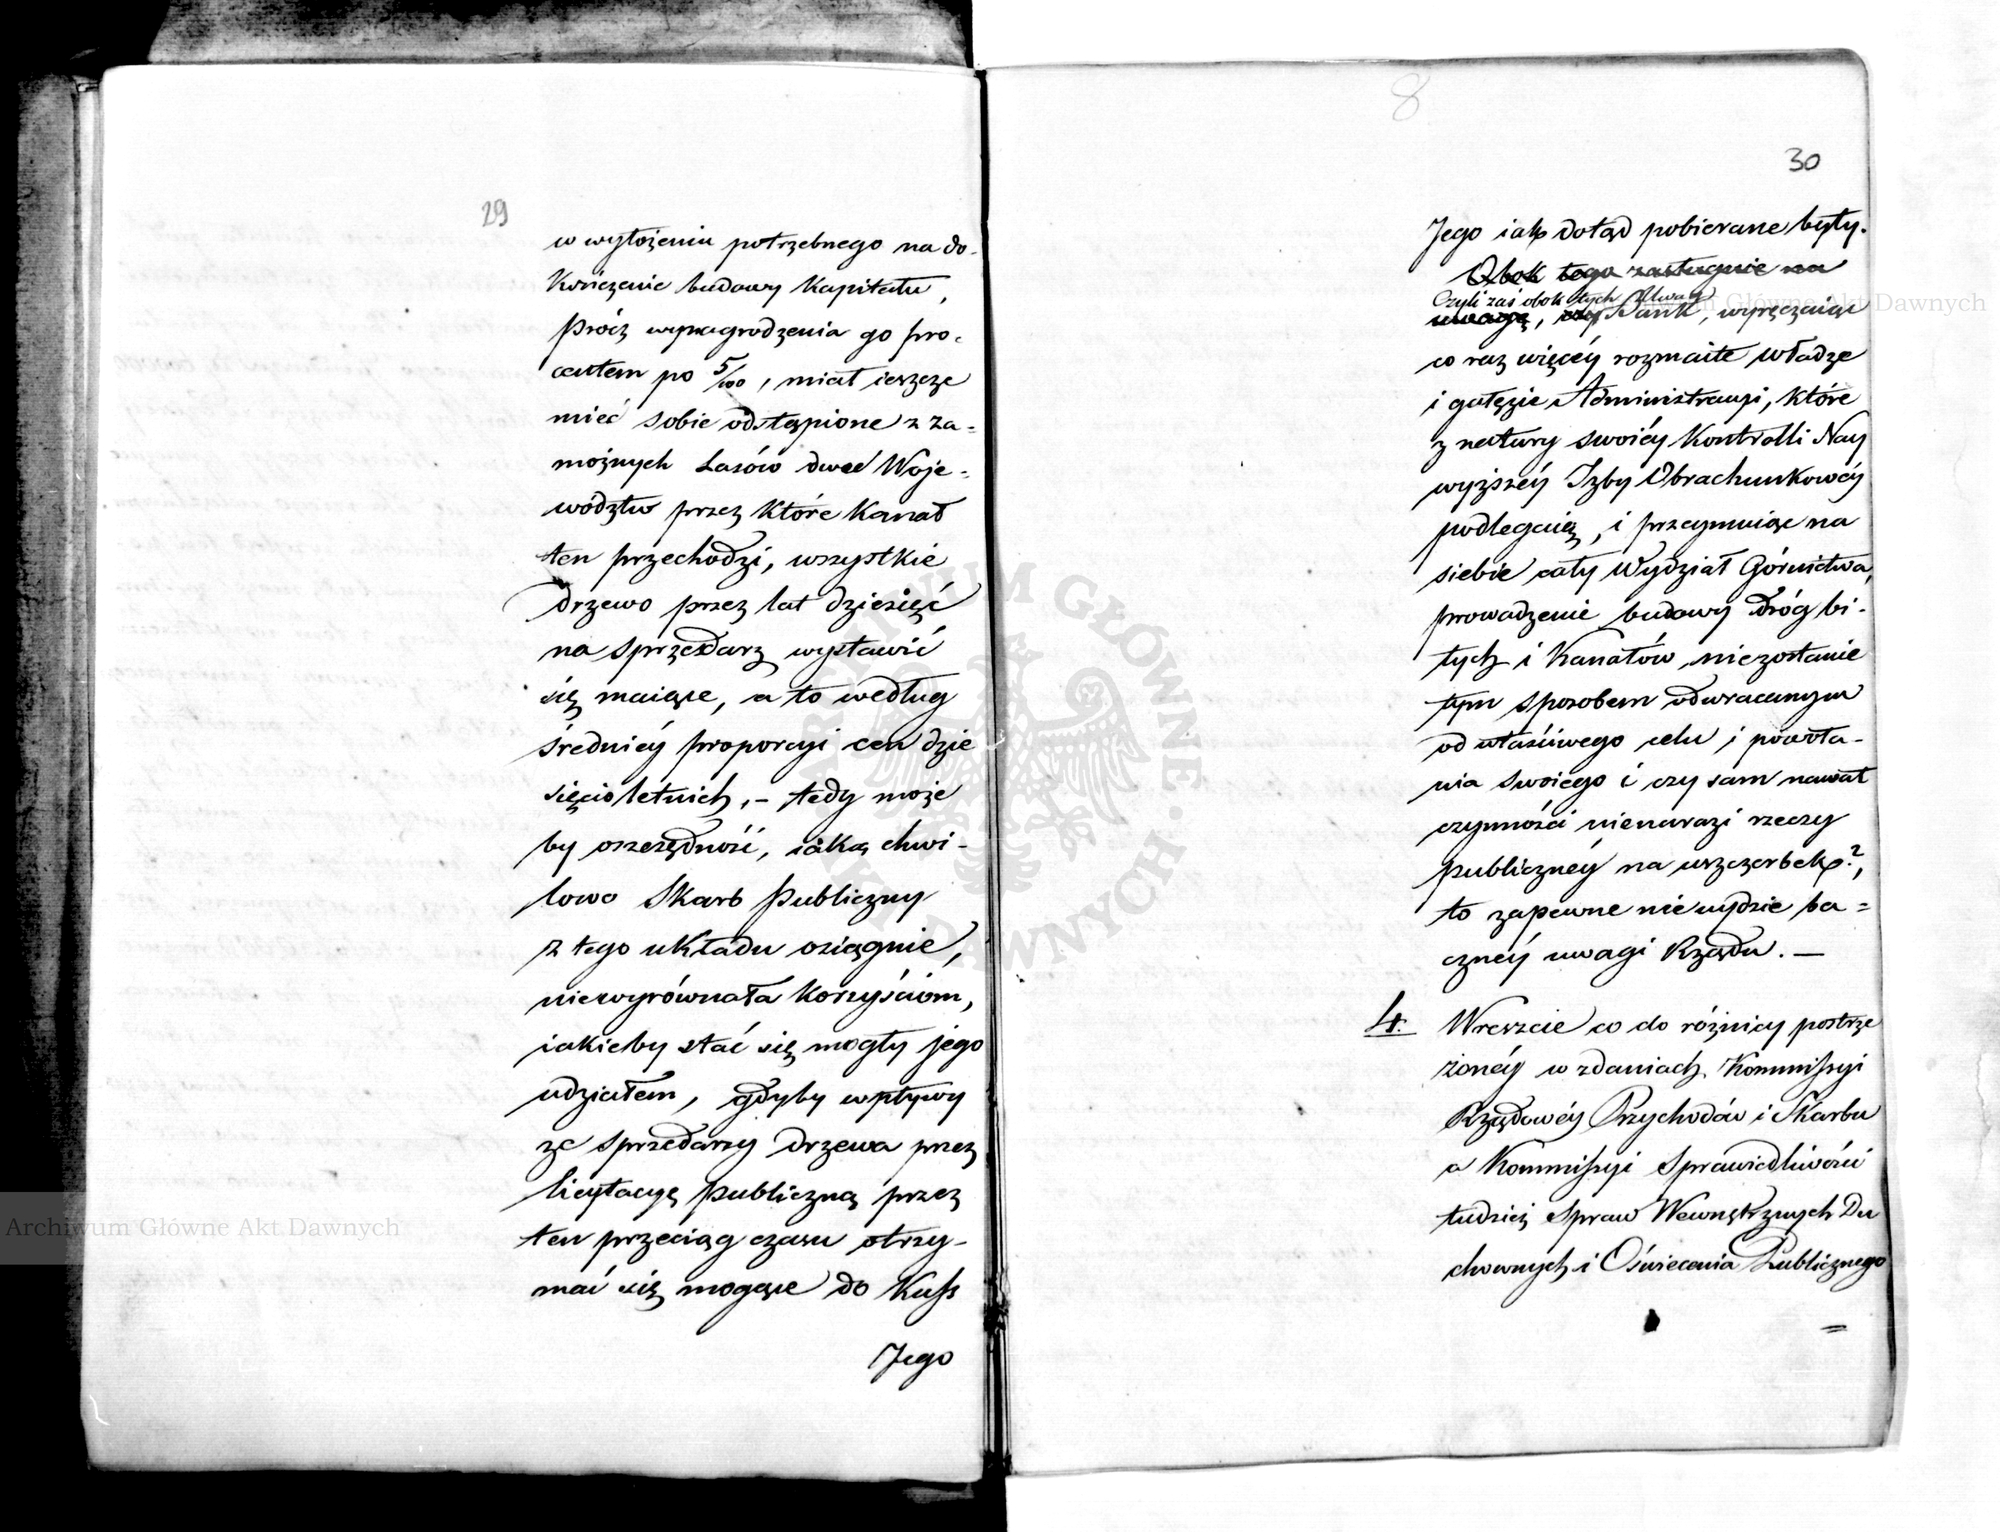 29
w wyłożeniu potrzebnego na do-
kończenie budowy Kapitału,
prócz wynagrodzenia go pro-
centem po 5/100, miał ieszcze
mieć sobie odstąpione z za-
możnych Lasów dwu Woje-
wództw przez które Kanał
ten przechodzi, wszystkie
drzewo przez lat dziesięć
na sprzedarz wystawić
się maiące, a to według
średniéy proporcyi cen dzie
sięcioletnich, – tedy może
by oszczędność, iaką chwi-
lowo Skarb Publiczny
z tego układu osiągnie,
niewyrównała korzyściom,
iakieby stać się mogły jego
udziałem, gdyby wpływy
ze sprzedarzy drzewa przez
licytacyę publiczną przez
ten przeciąg czasu otrzy-
mać się mogące do Kass
Jego
8
30
Jego iak dotąd pobierane były.
Obok tego zasługuie na
Czyli zaś obok tych Uwag
uwagę, czy Bank, wyręczaiąc
co raz więcéy rozmaite władze
i gałęzie Administracyi, które
z natury swoiéy Kontrolli Nay
wyższéy Izby Obrachunkowéy
podlegaią, i przeymuiąc na
siebie cały Wydział Górnictwa,
prowadzenie budowy dróg bi-
tych i Kanałów niezostanie
tym sposobem odwracanym
od właściwego celu i powoła-
nia swoiego i czy sam nawał
czynności nienarazi rzeczy
publicznéy na uszczerbek?,
to zapewne nieuydzie ba=
cznéy uwagi Rządu. —
4. Wreszcie co do różnicy postrze
żonéy w zdaniach Kommissyi
Rządowéy Przychodów i Skarbu
a Kommissyi Sprawiedliwości
tudzież Spraw Wewnętrznych Du
chownych i Oświecenia Publicznego
=
Archiwum Główne Akt Dawnych
Archiwum Główne Akt Dawnych
ARCHIWUM GŁÓWNE AKT DAWNYCH